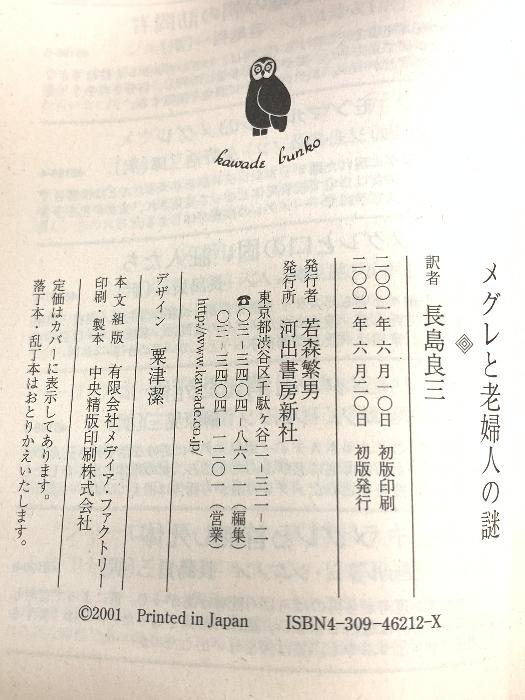 kawade bunko
メグレと老婦人の謎
訳者 長島良三
二〇〇一年 六月一〇日 初版印刷
二〇〇一年 六月二〇日 初版発行
発行者 若森繁男
発行所 河出書房新社
東京都渋谷区千駄ヶ谷二-三二-二
☎〇三-三四〇四-八六一一(編集)
〇三-三四〇四-一二〇一(営業)
http://www.kawade.co.jp/
デザイン 粟津潔
本文組版 有限会社メディア・ファクトリー
印刷・製本 中央精版印刷株式会社
定価はカバーに表示してあります。
落丁本・乱丁本はおとりかえいたします。
©2001 Printed in Japan ISBN4-309-46212-X